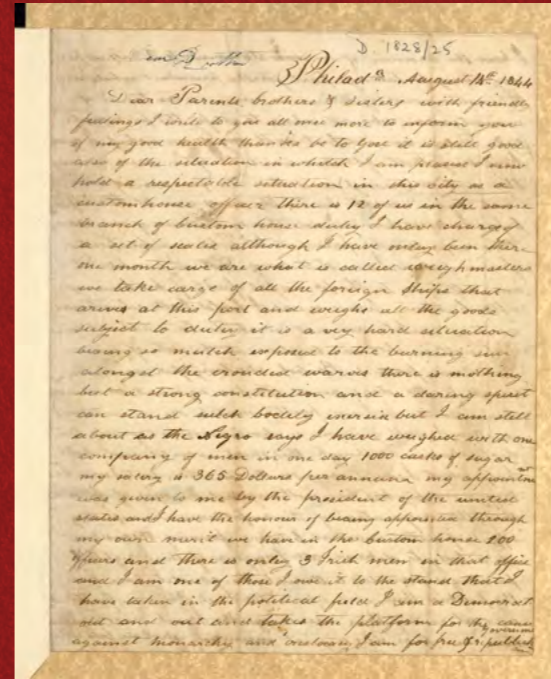 D 1828/25
Philad^a August 14th 1844
Dear Parents, brothers & sisters with friendly
feelings I write to you all once more to inform you
of my good health thanks be to God it is still good
also of the situation in whitch I am placed I now
hold a respectable situation in this city as a
customhouse officer there is 12 of us in the same
branch of Custom house duty I have charge of
a set of scales although I have onley been there
one month we are what is called weighmasters
we take carge of all the foreign Ships that
arives at this port and weighs all the goods
subject to dutey it is a very hard situation
beaing so mutch exposed to the burning sun
alongst the crouded warves there is nothing
but a strong constitution and a daring spirit
can stand sutch bodiley exersise but I am still
about as the Negro says I have weighed with one
company of men in one day 1000 casks of sugar
my salery is 365 Dollars per annum my appointment
was given to me by the president of the united
states and I have the honour of beaing appointed through
my own merit we have in the Custom house 200
officers and there is onley 3 Irish men in that office
and I am one of them I owe it to the stand that I
have taken in the political field I am a Democrat
out and out and takes the platform for the cause
against monarchy and I am for free & republick